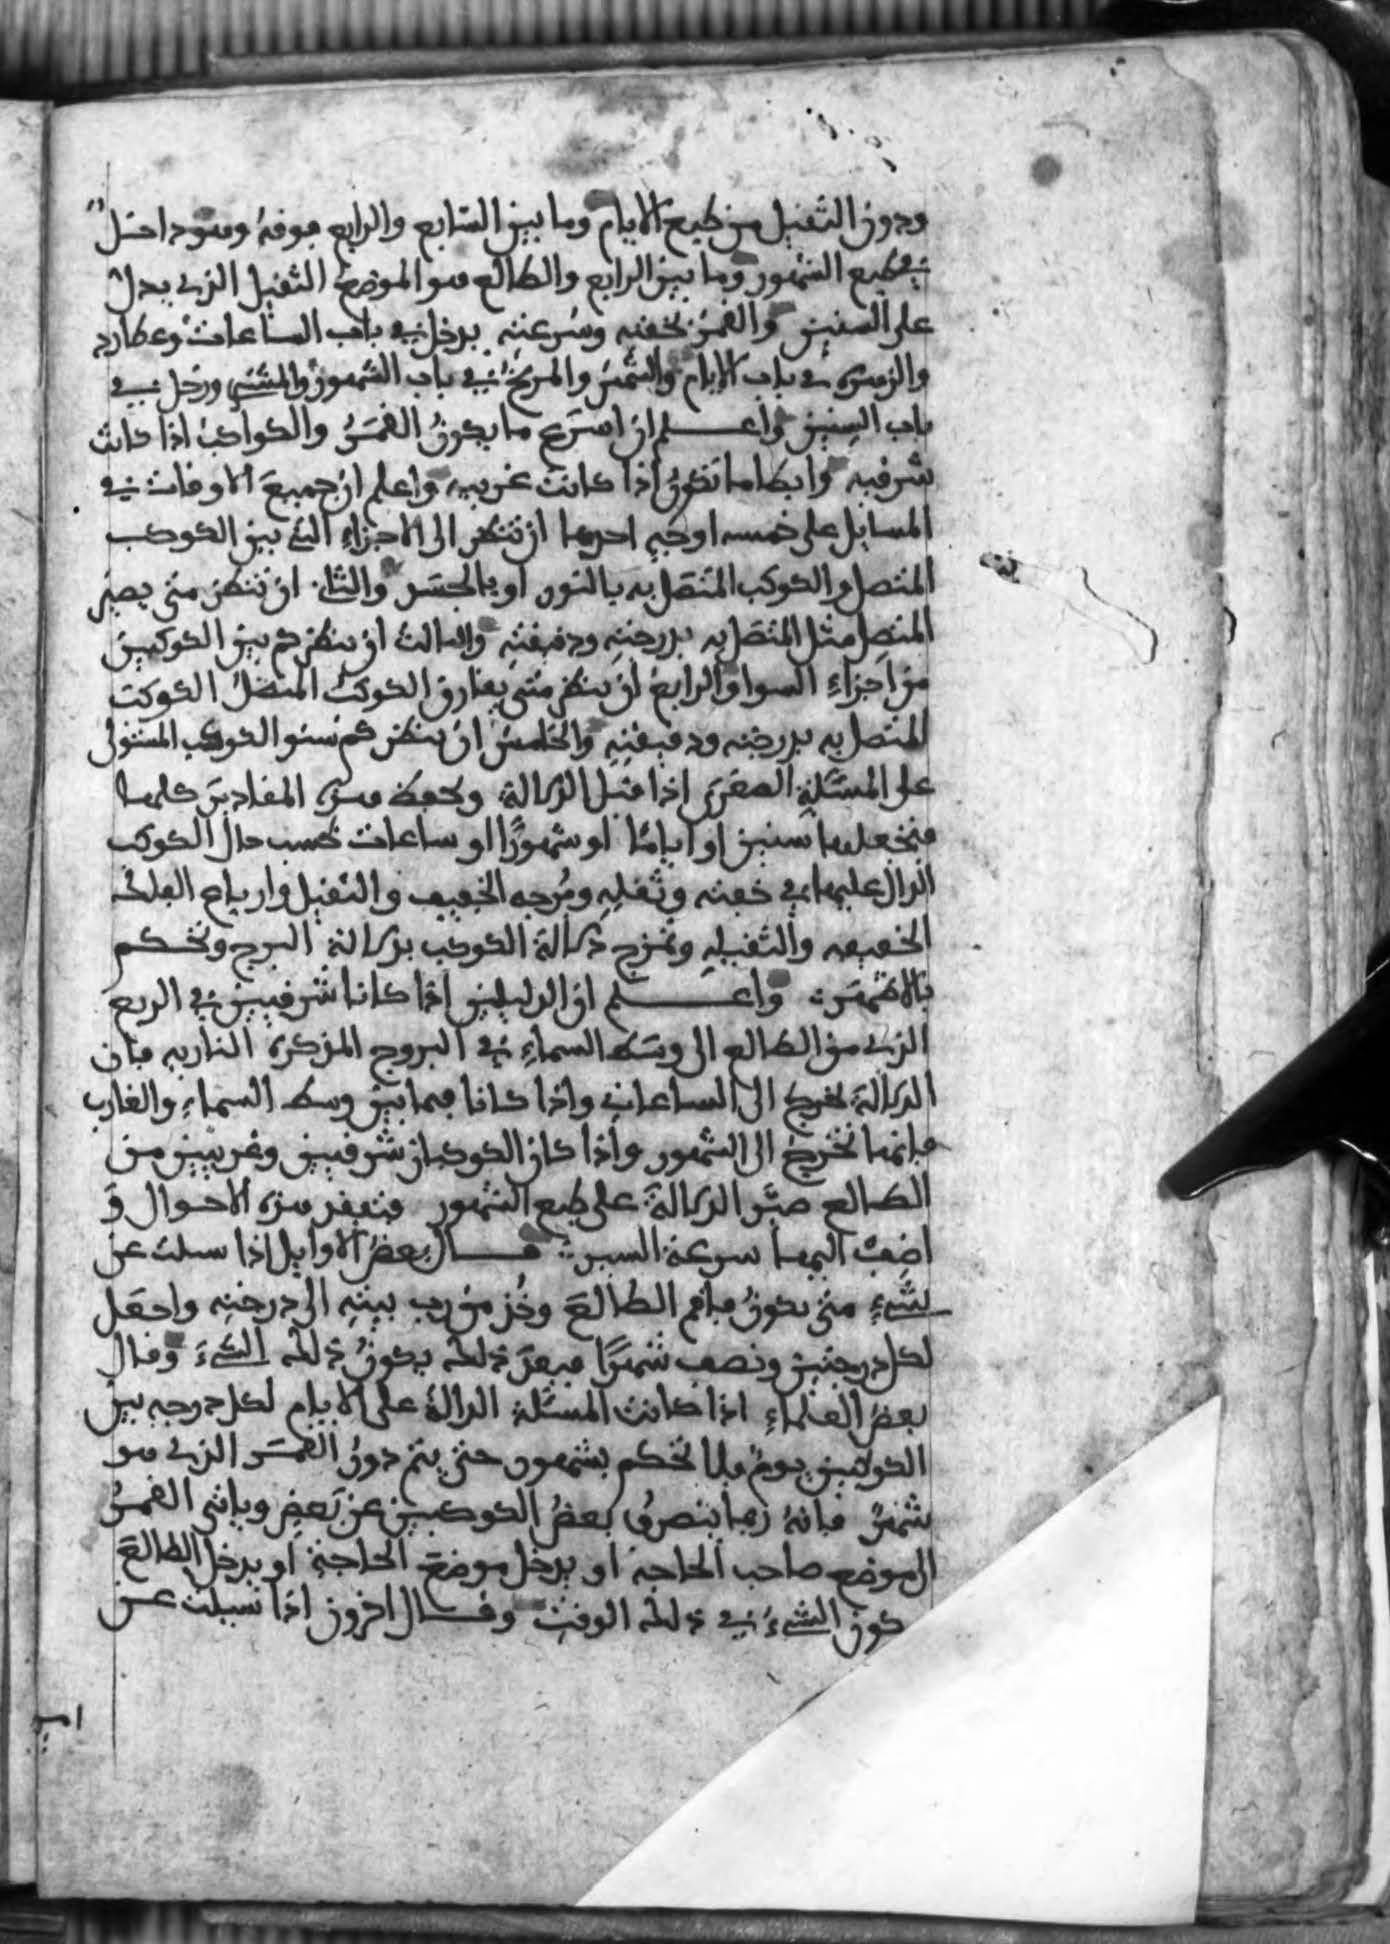 ودون الثقيل من طبع الايام وما بين السابع والرابع فوقه وهو داخل
في طبع الشهور وما بين الرابع والطالع هو الموضع الثقيل الذي يدل
على السنين والقمر لخفته وسرعته يدخل في باب الساعات وعطارد
والزهرة في باب الايام والشمس والمريخ في باب الشهور والمشتري وزحل في
باب السنين واعلم ان اسرع ما يكون القمر والكواكب اذا كانت
شرقية وابطا ما تكون اذا كانت غربيه واعلم ان جميع الاوقات في
المسايل على خمسه اوجه احدها ان تنظر الى الاجزاء التي بين الكوكب
المتصل والكوكب المتصل به بالنور او بالجسد والثاني ان تنظر متى يصير
المتصل مثل المتصل به بدرجته ودقيقته والثالث ان ينظر كم بين الكوكبين
من اجزاء السوا والرابع ان ينظر متى يقارن الكوكب المتصل الكوكب
المتصل به بدرجته ودقيقته والخامس ان ينظر كم سنو الكوكب المستولى
على المسئلة الصغرى اذا قبل الدلالة وتحفظ هذه المقادير كلها
فتجعلها سنين او اياما او شهورا او ساعات بحسب حال الكوكب
الدال عليها في خفته وثقله وبرجه الخفيف والثقيل وارباع الفلك
الخفيفه والثقيله وتمزج دلالة الكوكب بدلالة البرج وتحكم
بالاشهر واعلم ان الدليلين اذا كانا شرقيين في الربع
الذي من الطالع الى وسط السماء في البروج المذكرة الناريه فان
الدلالة تخرج الى الساعات واذا كانا فيما بين وسط السماء والغارب
فانها تخرج الى الشهور واذا كان الكوكبان شرقيين وغربيين من
الطالع صير الدلالة على طبع الشهور فتفقد هذه الاحوال و
اضف اليها سرعة السير قال بعض الاوايل اذا سيلت عن
شيء متى يكون فاقم الطالع وخذ من رب بيته الى درجته واجعل
لكل درجتين ونصف شهرا فبعد ذلك يكون ذلك الشيء وقال
بعض العلماء اذا كانت المسئلة الدالة على الايام لكل درجه بين
الكوكبين يوم ولا تحكم بشهور حتى يتم دور القمر الذي هو
شهر فانه ربما ينصرف بعض الكوكبين عن بعض وياتي القمر
الى موضع صاحب الحاجه او يدخل موضع الحاجة او يدخل الطالع
كون الشيء في ذلك الوقت وقال اخرون اذا سيلت عن